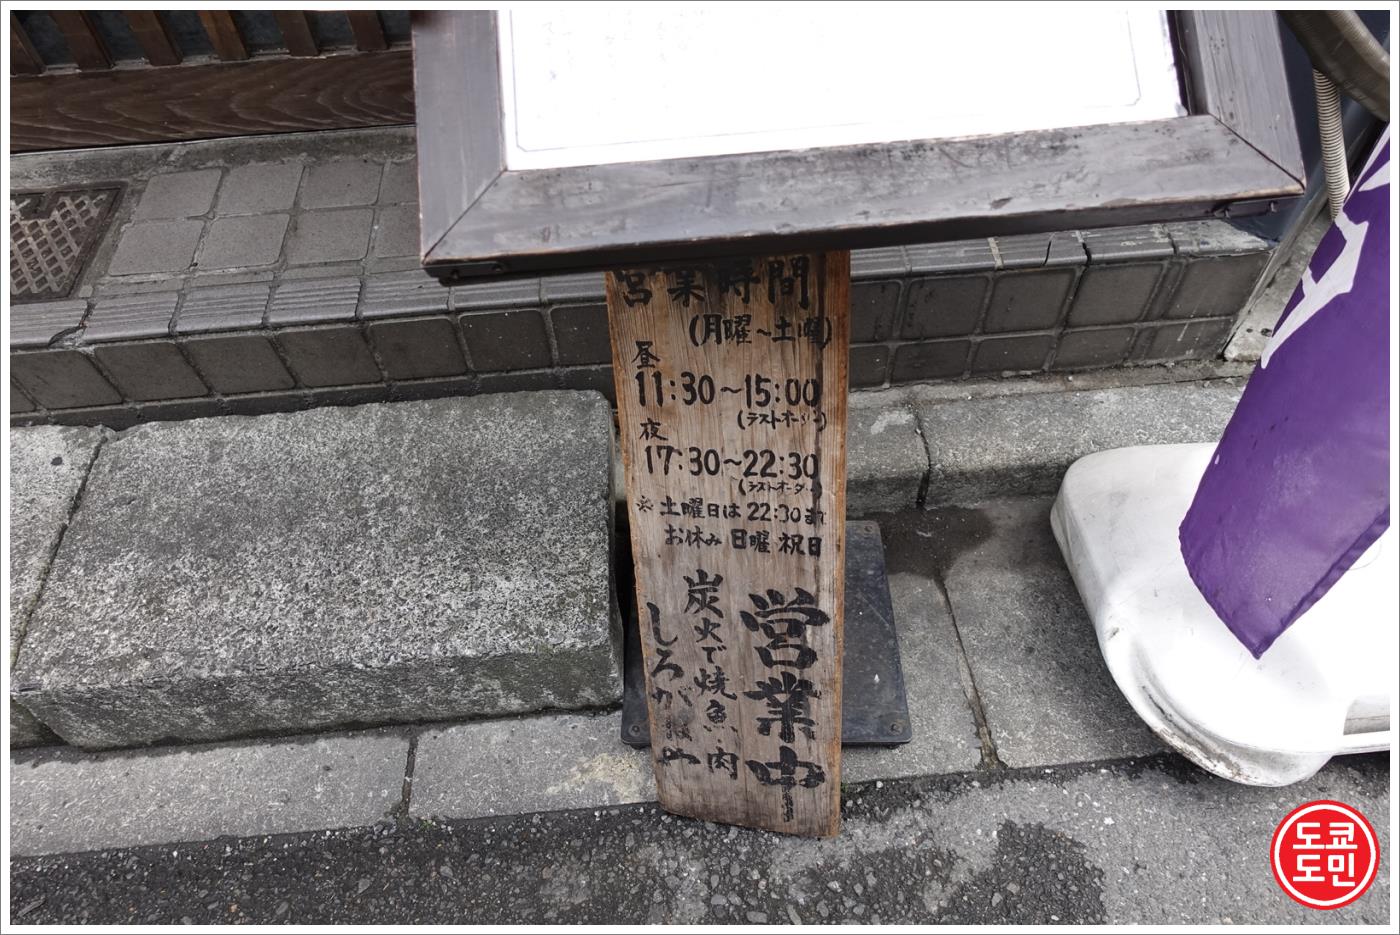 営業時間
(月曜～土曜)
昼
11:30～15:00
(ラストオーダー)
夜
17:30～22:30
(ラストオーダー)
※土曜日は22:30まで
お休み 日曜 祝日
営業中
炭火で焼魚・肉
しろがねや
도쿄
도민